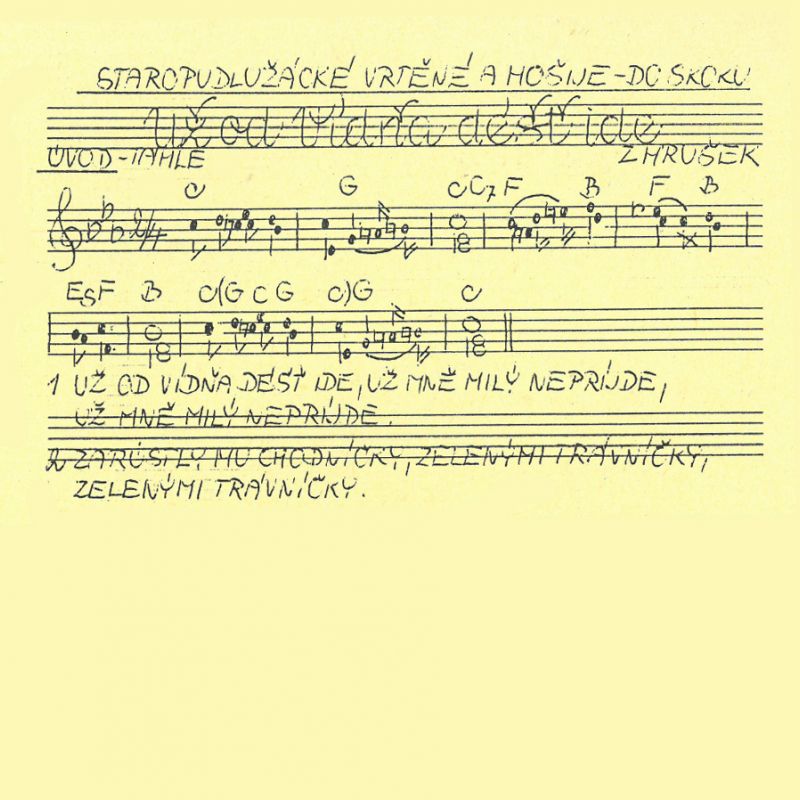 STAROPUDLUŽÁCKÉ VRTĚNÉ A HOŠIJE - DO SKOKU
Už od Vídňa déšť ide
ÚVOD - TÁHLE
Z HRUŠEK
C G C C7 F B F B
2/4
Es F B C(G C G C)G C
1 UŽ OD VÍDŇA DÉŠŤ IDE, UŽ MNĚ MILÝ NEPŘIJDE,
UŽ MNĚ MILÝ NEPŘIJDE.
2 ZARÚSTLY MU CHODNÍČKY, ZELENÝMI TRÁVNÍČKY,
ZELENÝMI TRÁVNÍČKY.